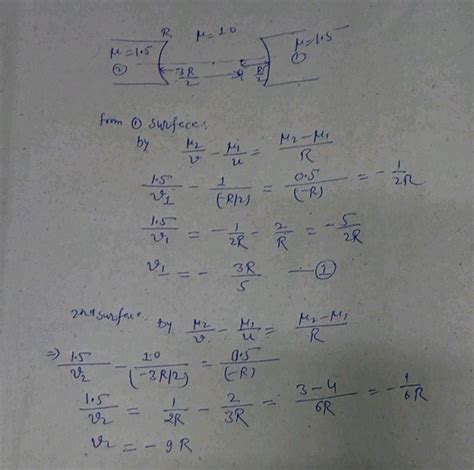 R μ=1.0
μ=1.5 μ=1.5
② ①
3R/2 R/2
from ① Surface,
by μ2/v - μ1/u = μ2-μ1/R
1.5/v1 - 1/(-R/2) = 0.5/(-R) = -1/2R
1.5/v1 = -1/2R - 2/R = -5/2R
v1 = - 3R/5 — ①
2nd surface. by μ2/v - μ1/u = μ2-μ1/R
⇒ 1.5/v2 - 1.0/(-3R/2) = 0.5/(-R)
1.5/v2 = 1/2R - 2/3R = 3-4/6R = -1/6R
v2 = -9R